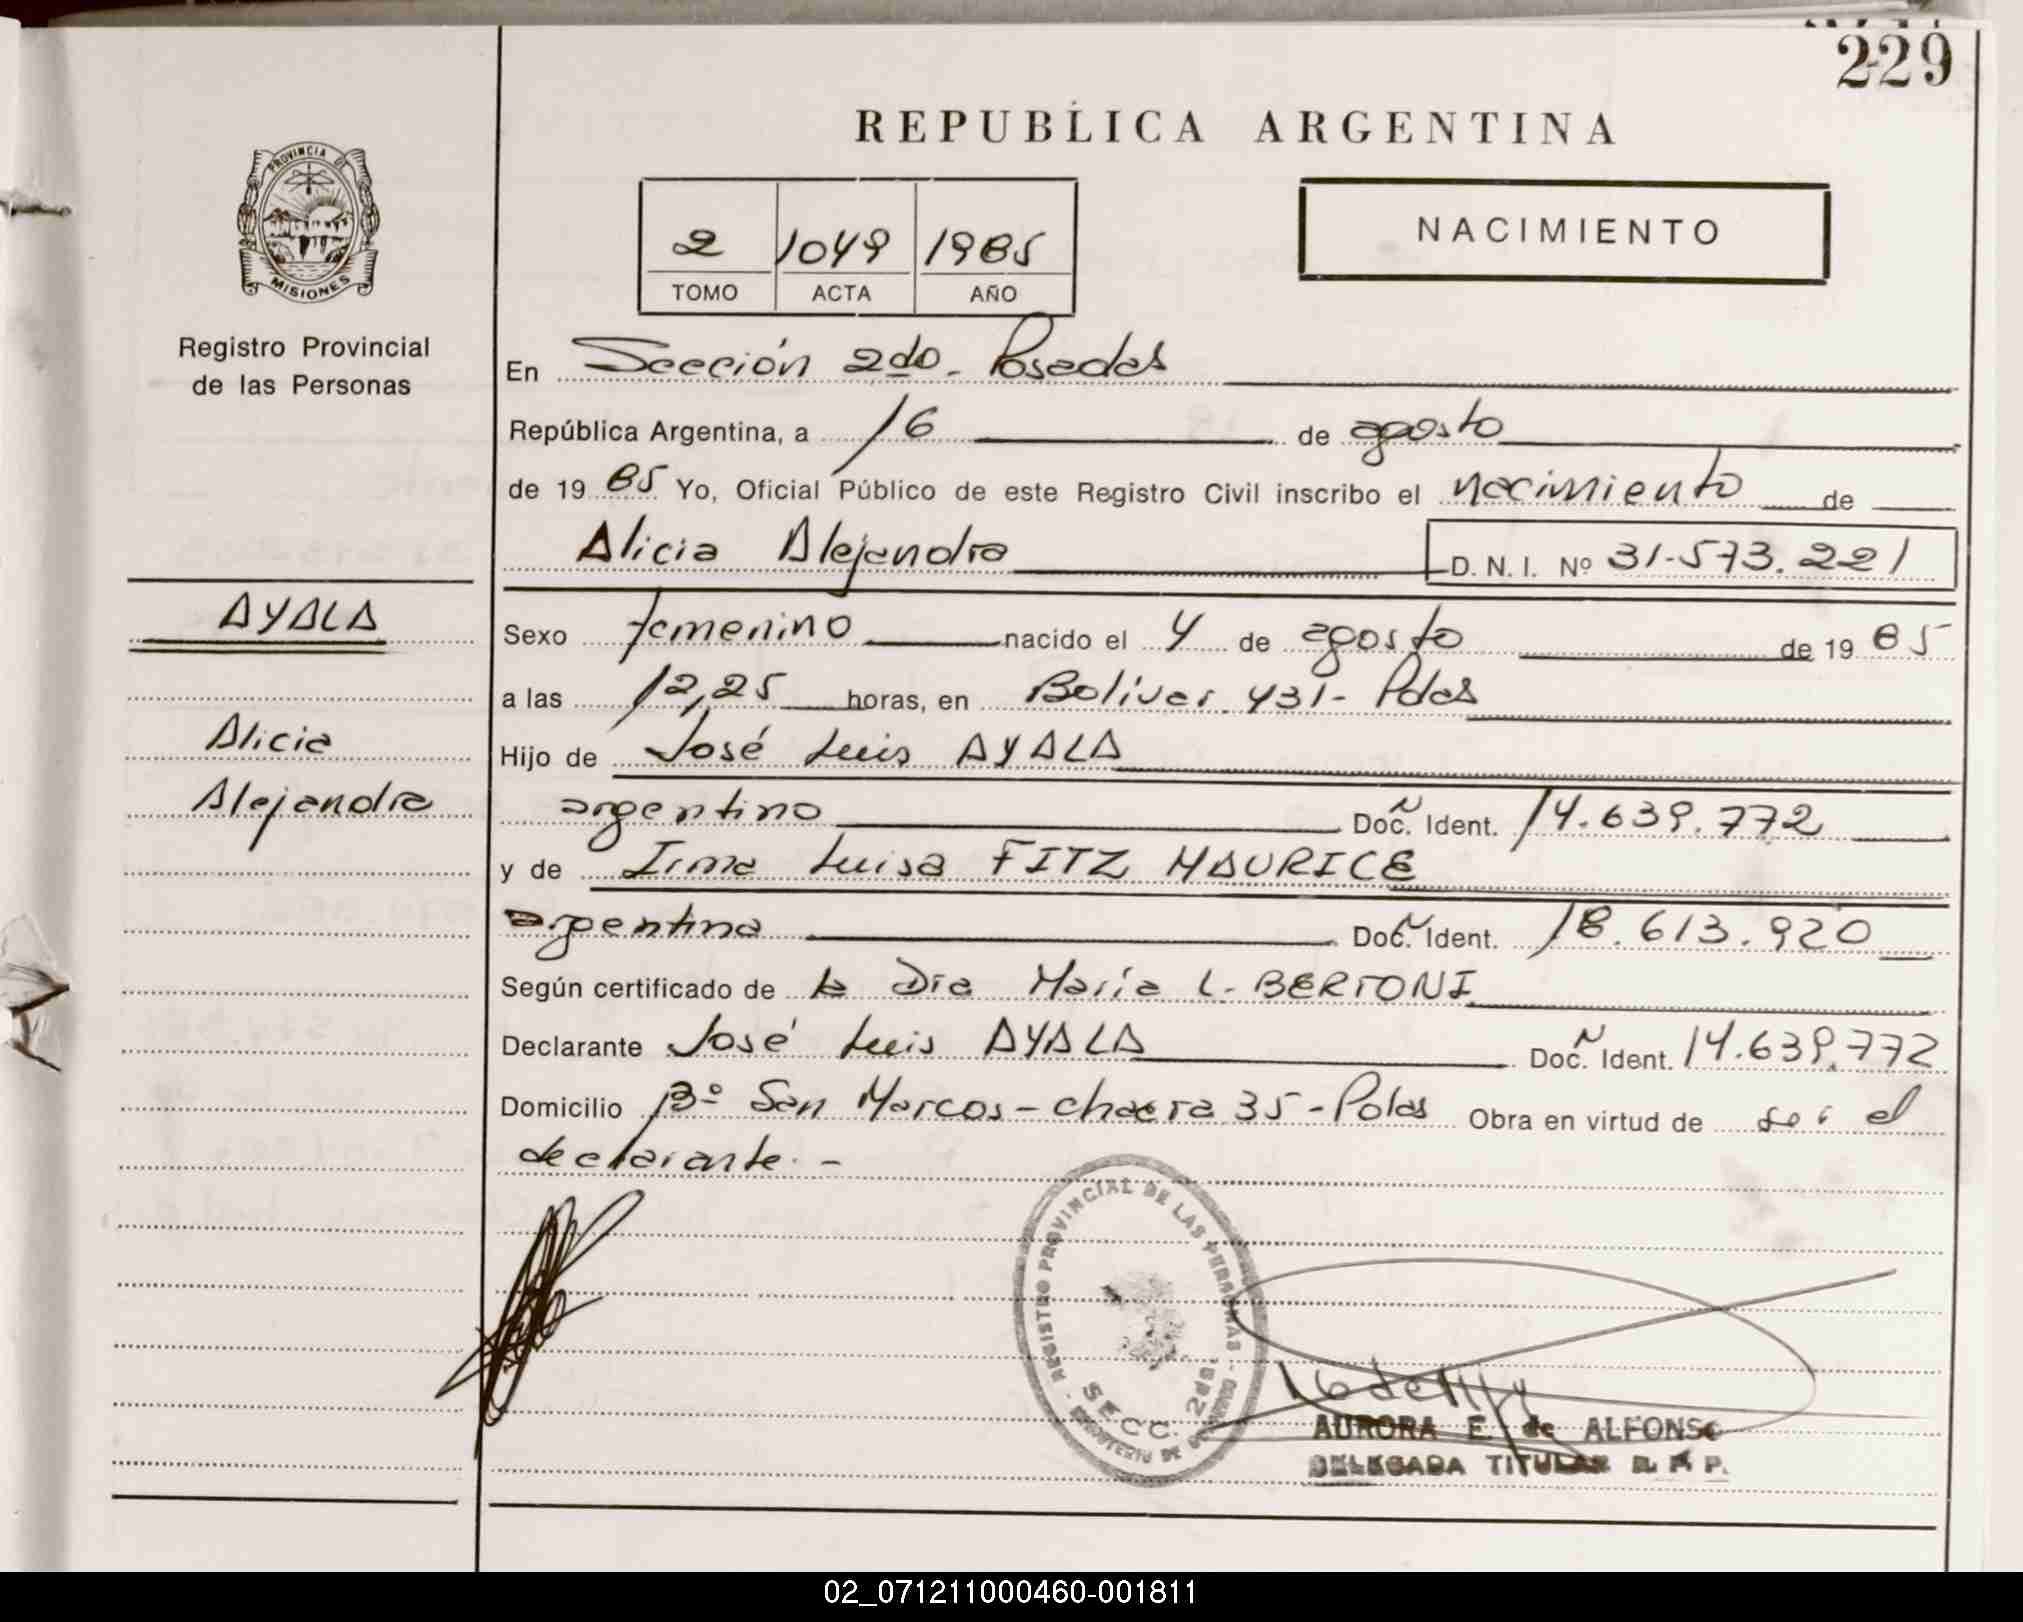 229
REPUBLICA ARGENTINA
PROVINCIA DE
MISIONES
Registro Provincial
de las Personas
2 1049 1985
TOMO ACTA AÑO
NACIMIENTO
En Sección 2do. Posadas
República Argentina, a 16 de agosto
de 1985 Yo, Oficial Público de este Registro Civil inscribo el nacimiento de
Alicia Alejandra D. N. I. Nº 31.573.221
AYALA
Alicia
Alejandra
Sexo femenino nacido el 4 de agosto de 1985
a las 12,25 horas, en Bolívar 431 - Pdas
Hijo de José Luis AYALA
argentino Doc. Ident. 14.639.772
y de Irma Luisa FITZ MAURICE
argentina Doc. Ident. 18.613.920
Según certificado de la Dra María L. BERTONI
Declarante José Luis AYALA Doc. Ident. 14.639.772
Domicilio Bº San Marcos - chacra 35 - Pdas Obra en virtud de ser el
declarante. -
REGISTRO PROVINCIAL DE LAS PERSONAS
SECC. 2da.
MINISTERIO DE GOBIERNO
AURORA E. de ALFONSO
DELEGADA TITULAR R. P. P.
02_071211000460-001811